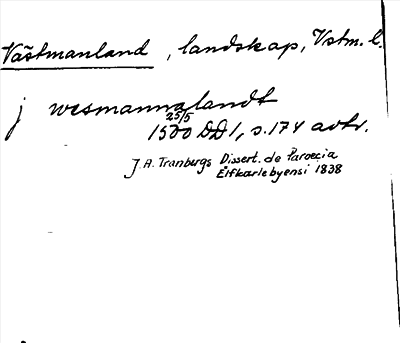 Västmanland, landskap, Vstm. l.
j wesmannalandt
25/5
1500 DD1, s. 174 avtr.
J. A. Tranbergs Dissert. de Paroecia
Elfkarlebyensi 1838